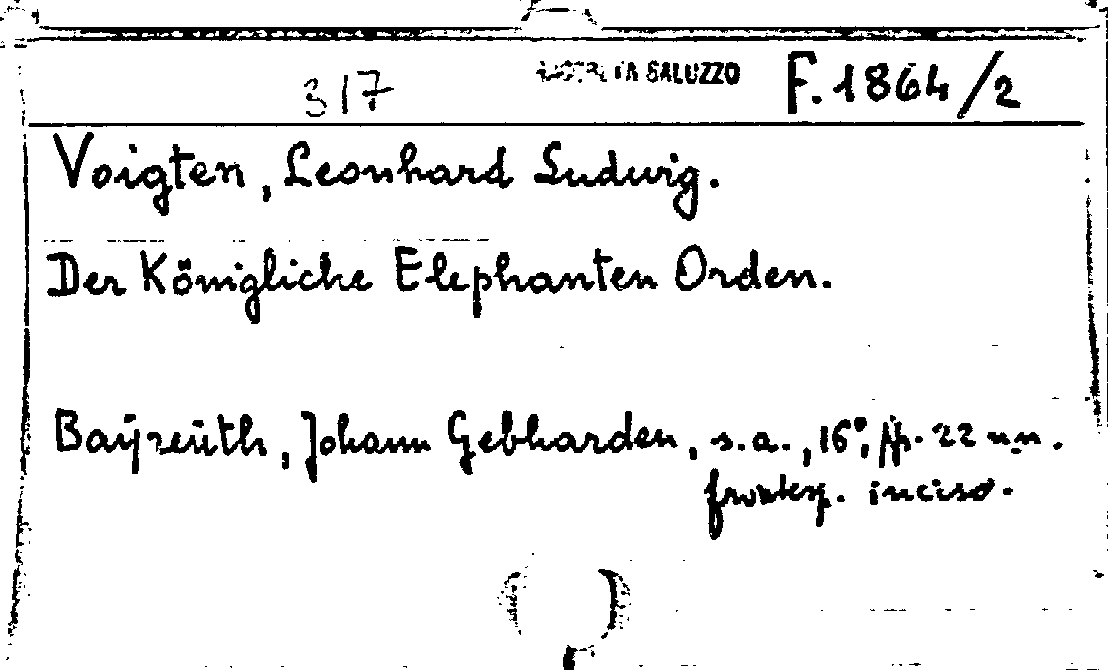 317 SALUZZO F.1864/2
Voigten, Leonhard Ludwig.
Der Königliche Elephanten Orden.
Baÿreüth, Johann Gebharden, s.a., 16°, pp. 22 nn.
frontesp. inciso.